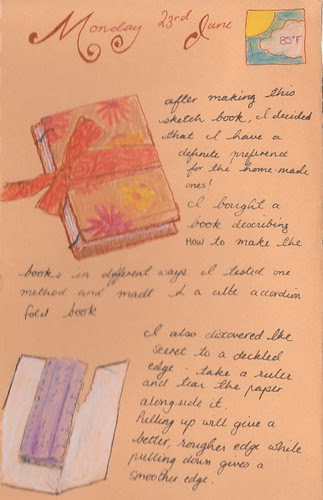 Monday 23rd June
85°F
after making this
sketch book, I decided
that I have a
definite preference
for the home-made
ones!
I bought a
book describing
How to make the
books in different ways I tested one
method and made a cute accordion
fold book
I also discovered the
secret to a deckled
edge - take a ruler
and tear the paper
alongside it.
Pulling up will give a
better, rougher edge while
pulling down gives a
smoother edge.